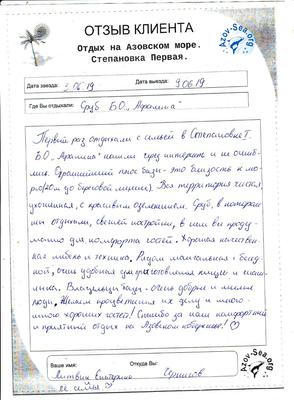 ОТЗЫВ КЛИЕНТА
Отдых на Азовском море.
Степановка Первая.
Azov-Sea.org
Дата заезда: 3.06.19 Дата выезда: 9.06.19
Где Вы отдыхали: Сруб Б.О. „Аралина"
Первый раз отдыхали с семьей в Степановке I.
Б.О „Аралина" нашли через интернет и не ошиб-
лись. Огромнейший плюс базы - это близость к мо-
рю (до береговой линии). Вся территория чистая,
ухоженная, с красивым озеленением. Сруб, в котором
мы отдыхали, свежей постройки, в нем все проду-
манно для комфорта гостей. Хорошая качествен-
ная мебель и техника. Рядом мангальная с бесед-
кой, очень удобная для приготовления пищи и шаш-
лыка. Владельцы базы - очень добрые и милые
люди, Желаем процветания их делу и много-
много хороших гостей! Спасибо за наш комфортный
и приятный отдых на Азовском побережье! ♡
Ваше имя: Откуда Вы:
Литвин Екатерина Чернигов
и её семья
Azov-Sea.org